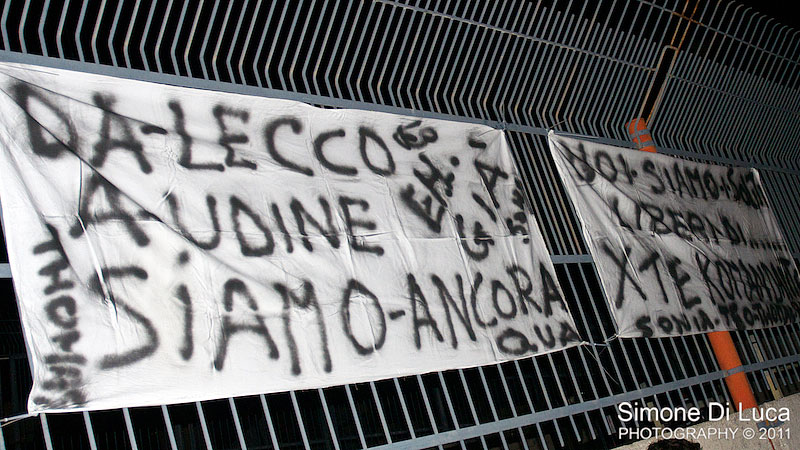 DA-LECCO
A-UDINE
SIAMO-ANCORA
QUA
EH.
GIA
THOMAS
NOI-SIAMO-
LIBERI-DI.....
XTE
SONIA-
Simone Di Luca
PHOTOGRAPHY © 2011